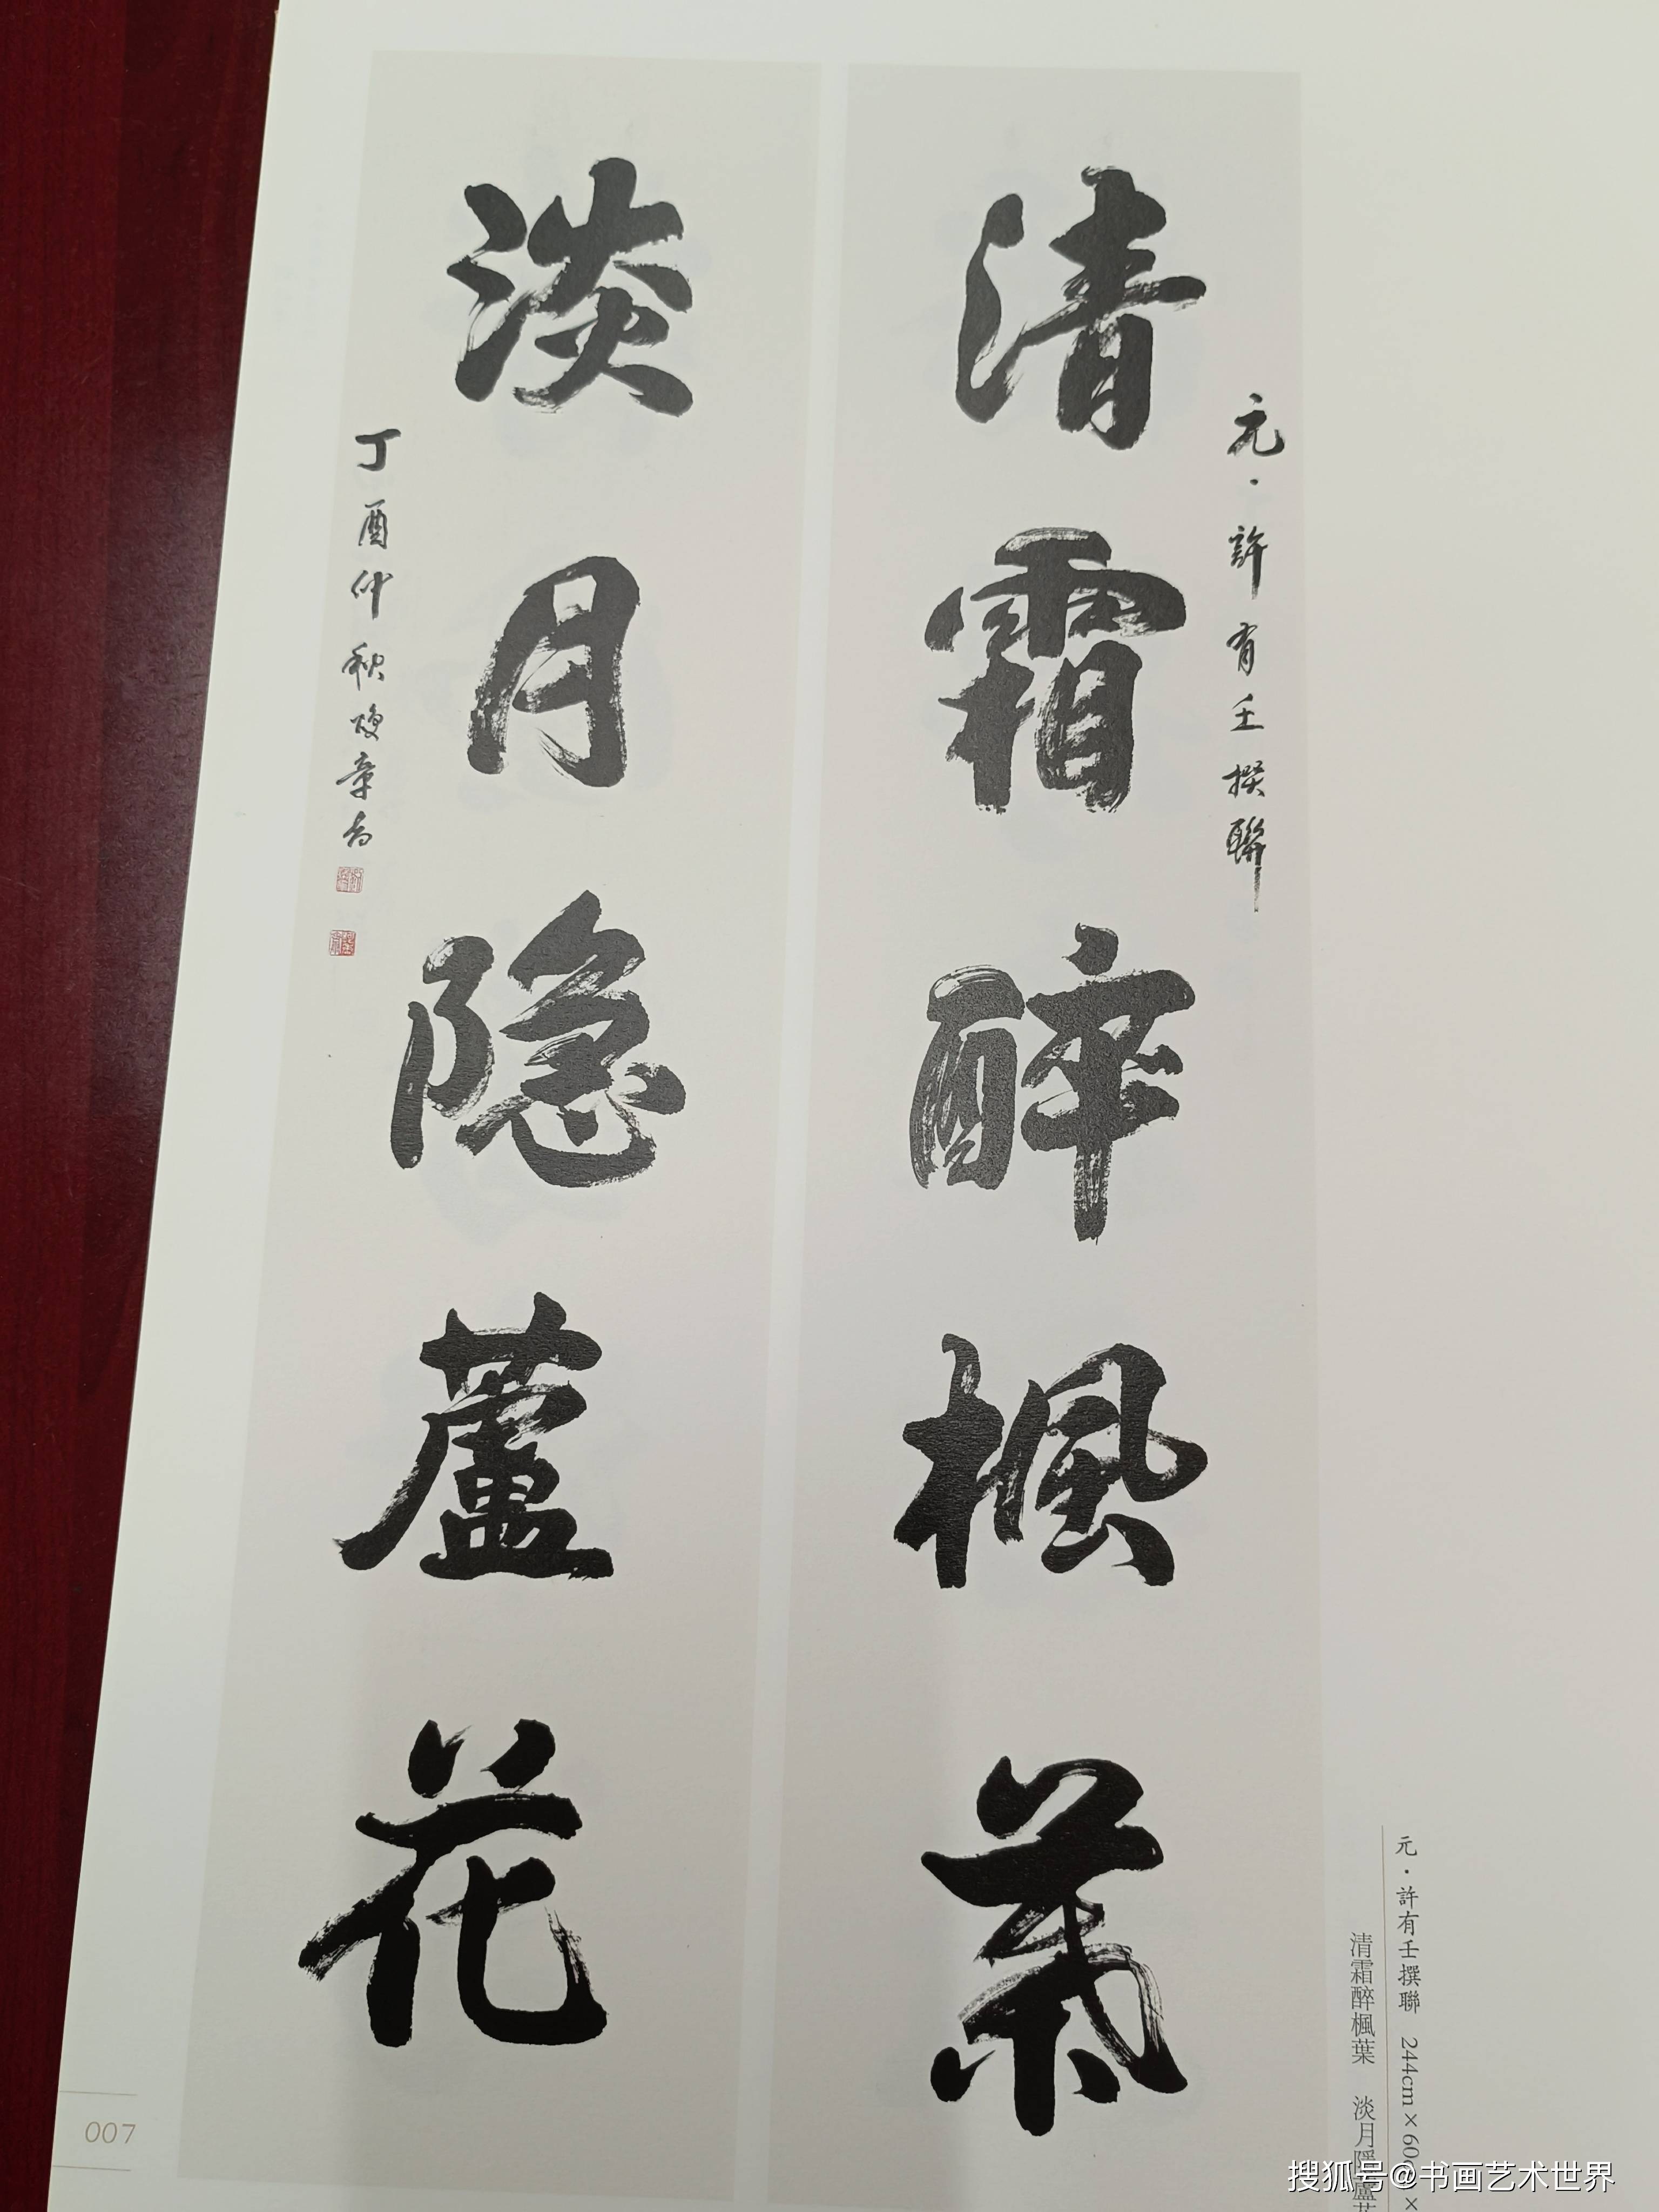 元·許有壬撰聯
清霜醉楓葉
淡月隐蘆花
丁酉仲秋
元·許有壬撰聯 244cm×60
清霜醉楓葉 淡月隱蘆花
007
搜狐号@书画艺术世界